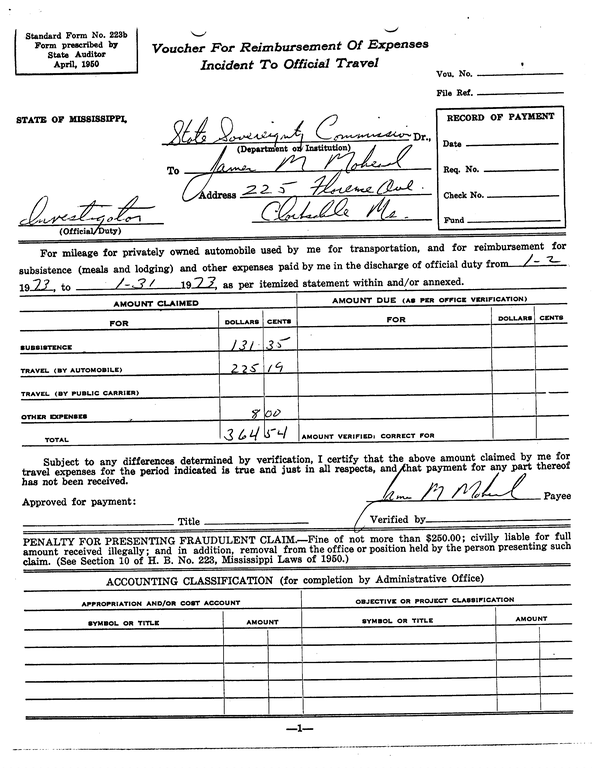 Standard Form No. 223b
Form prescribed by
State Auditor
April, 1950
Voucher For Reimbursement Of Expenses
Incident To Official Travel
Vou. No.
File Ref.
STATE OF MISSISSIPPI,
State Sovereignty Commission Dr.,
(Department or Institution)
To James M Mohead
Address 225 Florence Ave.
Clarksdale Ms.
Investigator
(Official/Duty)
RECORD OF PAYMENT
Date
Req. No.
Check No.
Fund
For mileage for privately owned automobile used by me for transportation, and for reimbursement for
subsistence (meals and lodging) and other expenses paid by me in the discharge of official duty from 1-2
1973, to 1-31 1973, as per itemized statement within and/or annexed.
AMOUNT CLAIMED AMOUNT DUE (AS PER OFFICE VERIFICATION)
FOR DOLLARS CENTS FOR DOLLARS CENTS
SUBSISTENCE 131 35
TRAVEL (BY AUTOMOBILE) 225 19
TRAVEL (BY PUBLIC CARRIER)
OTHER EXPENSES 8 00
TOTAL 364 54 AMOUNT VERIFIED: CORRECT FOR
Subject to any differences determined by verification, I certify that the above amount claimed by me for
travel expenses for the period indicated is true and just in all respects, and that payment for any part thereof
has not been received.
James M Mohead Payee
Approved for payment:
Title Verified by
PENALTY FOR PRESENTING FRAUDULENT CLAIM.—Fine of not more than $250.00; civilly liable for full
amount received illegally; and in addition, removal from the office or position held by the person presenting such
claim. (See Section 10 of H. B. No. 223, Mississippi Laws of 1950.)
ACCOUNTING CLASSIFICATION (for completion by Administrative Office)
APPROPRIATION AND/OR COST ACCOUNT OBJECTIVE OR PROJECT CLASSIFICATION
SYMBOL OR TITLE AMOUNT SYMBOL OR TITLE AMOUNT
—1—